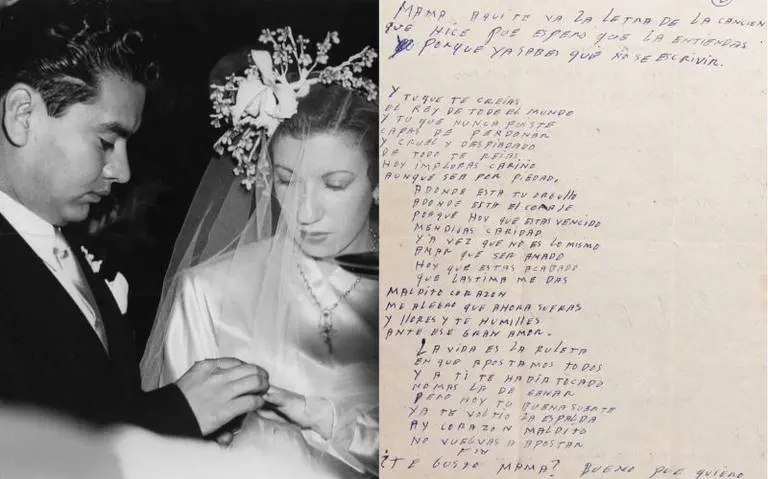 MAMA AQUI TE VA LA LETRA DE LA CANCION
QUE HICE PUE ESPERO QUE LA ENTIENDAS
PORQUE YA SABES QUE NO SE ESCRIVIR.
Y TU QUE TE CREIAS
EL REY DE TODE EL MUNDO
Y TU QUE NUNCA FUISTE
CAPAS DE PERDONAR
Y CRUEL Y DESPIADADO
DE TODO TE REIAS
HOY IMPLORAS CARIÑO
AUNQUE SEA POR PIEDAD.
ADONDE ESTA TU ORGULLO
ADONDE ESTA EL CORAJE
PORQUE HOY QUE ESTAS VENCIDO
MENDIGAS CARIDAD
YA VEZ QUE NO ES LO MISMO
AMAR QUE SER AMADO
HOY QUE ESTAS ACABADO
QUE LASTIMA ME DAS
MALDITO CORAZON
ME ALEGRO QUE AHORA SUFRAS
Y LLORES Y TE HUMILLES
ANTE ESE GRAN AMOR.
LA VIDA ES LA RULETA
EN QUE APOSTAMOS TODOS
Y A TI TE HABIA TOCADO
NOMAS LA DE GANAR
PERO HOY TU BUENA SUERTE
YA TE VOLTIO LA ESPALDA
AY CORAZON MALDITO
NO VUELVAS A APOSTAR
FIN
¿TE GUSTO MAMA? BUENO PUE QUIERO